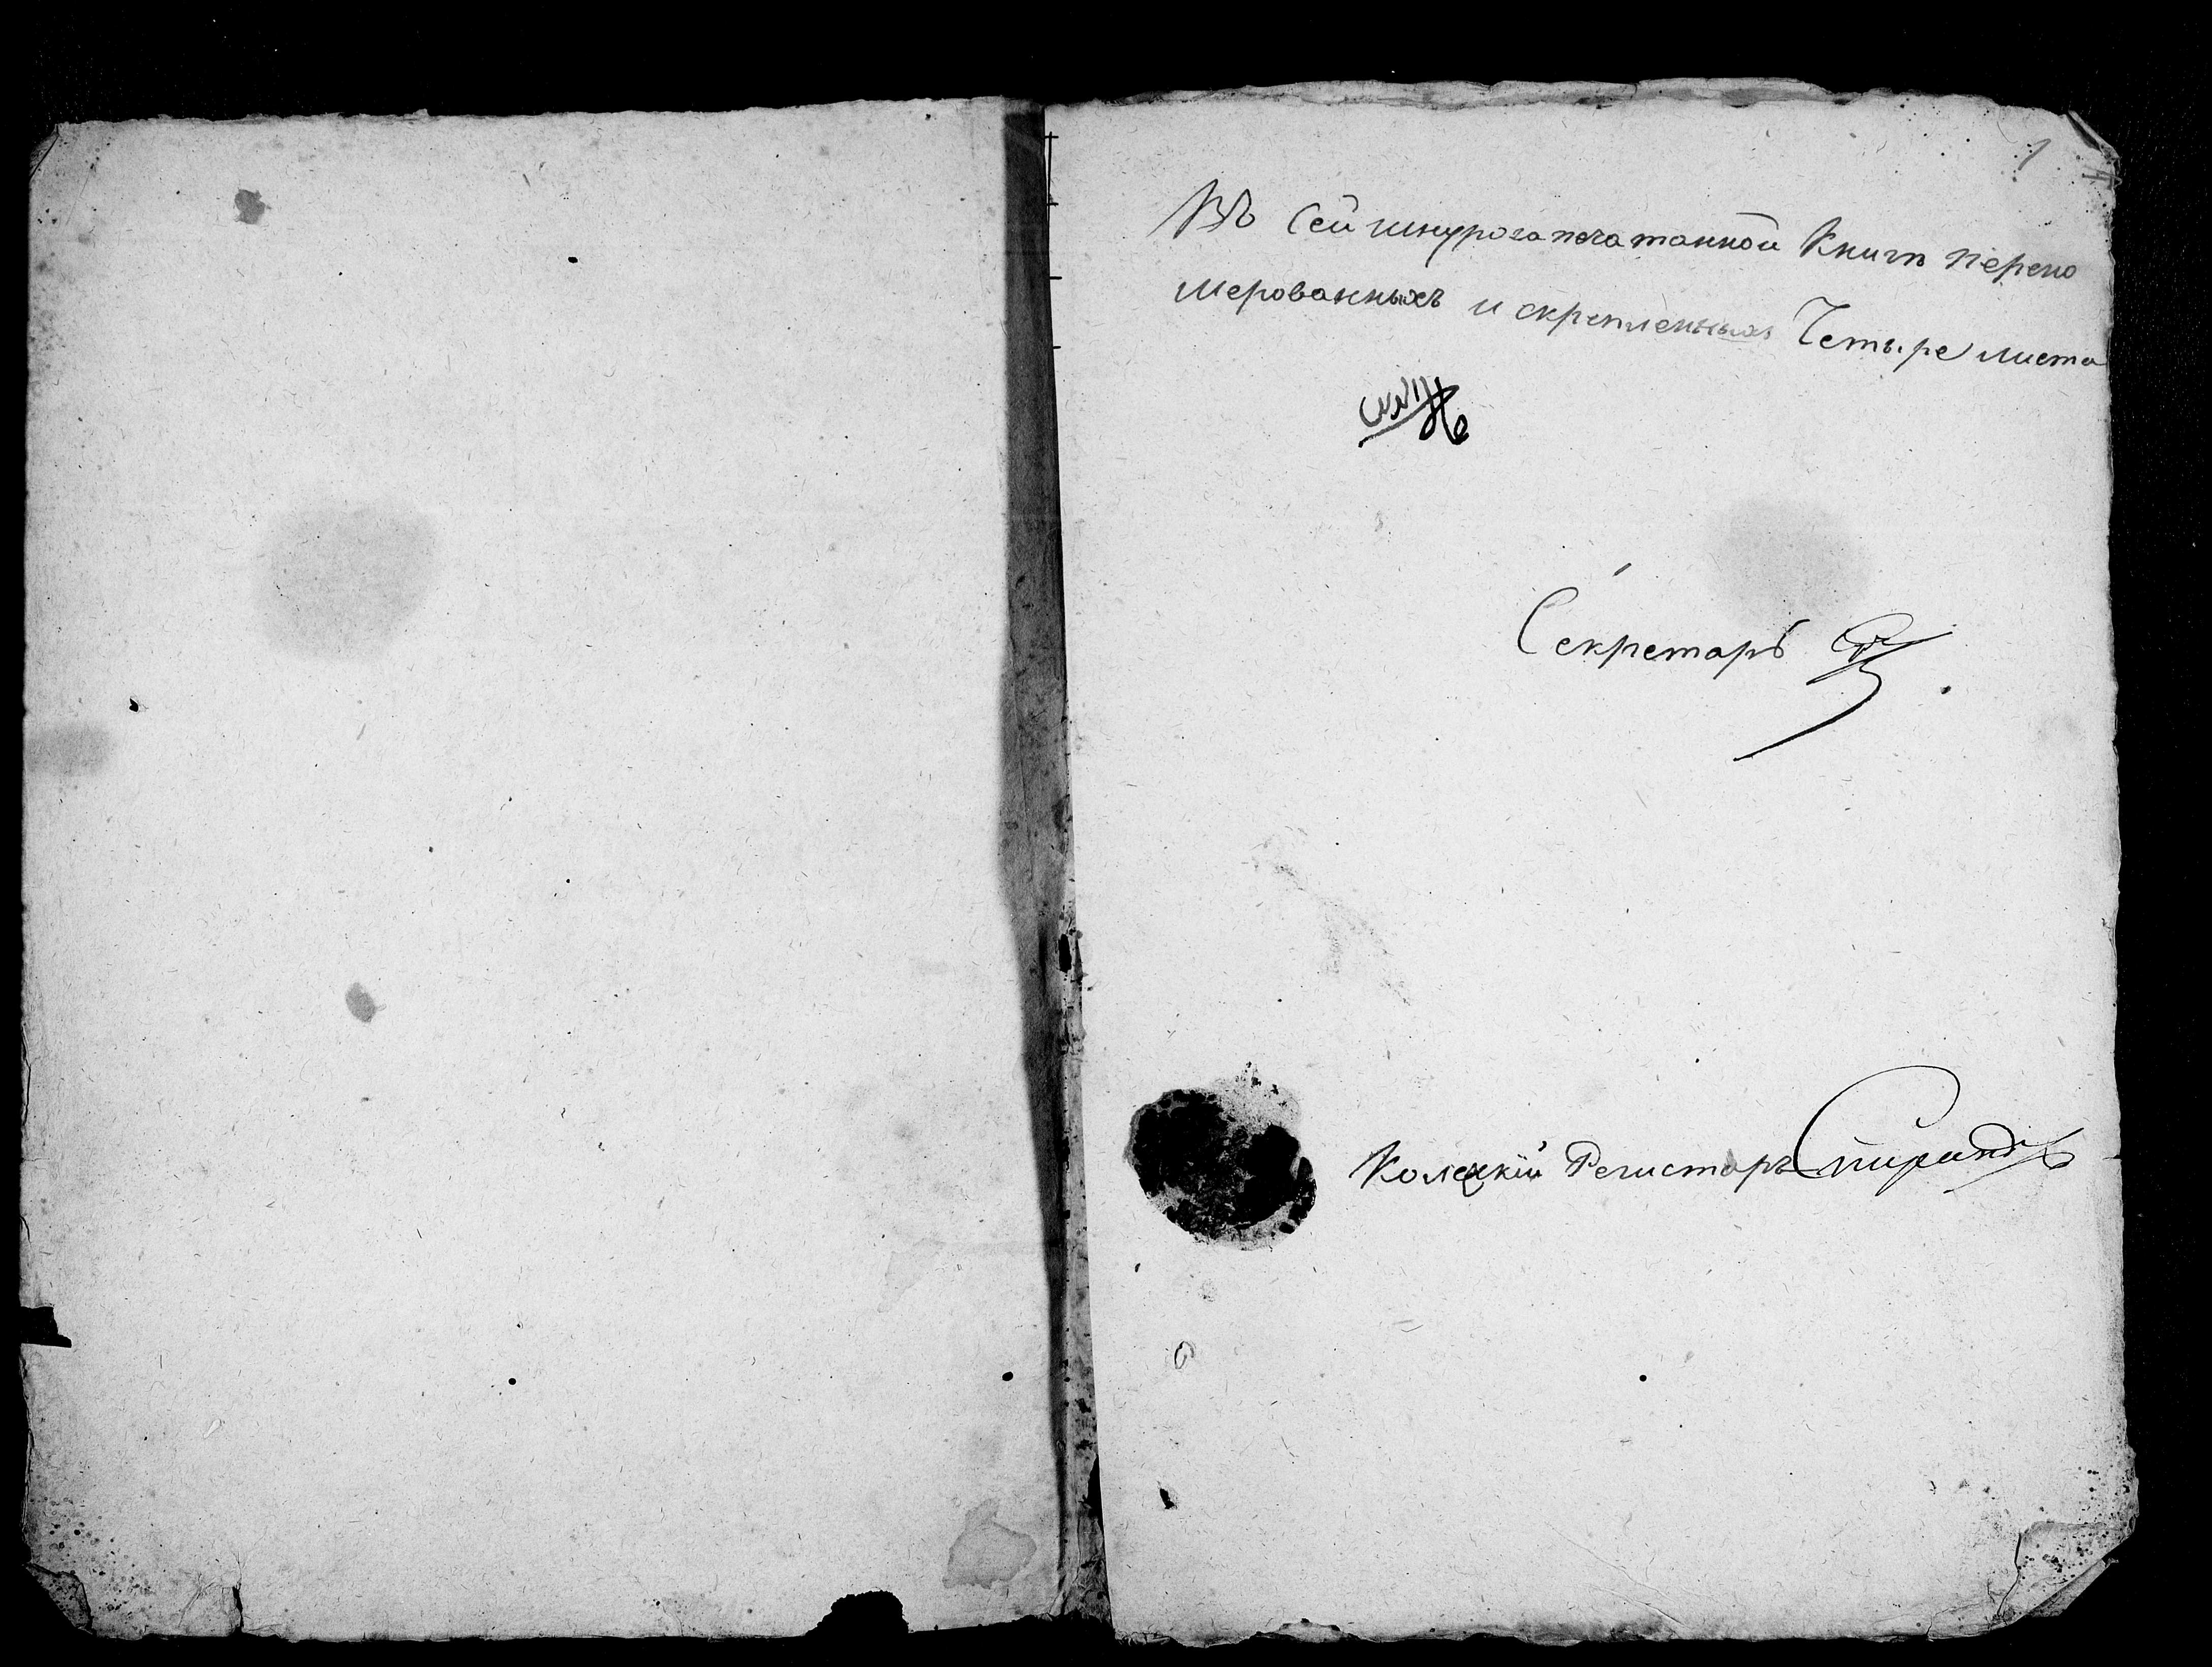 1
Въ Сей шнурозапечатанной Книгѣ перено
мерованныхъ и скрепленныхъ Четыре листа
Секретарь
Колецкій Регистаръ